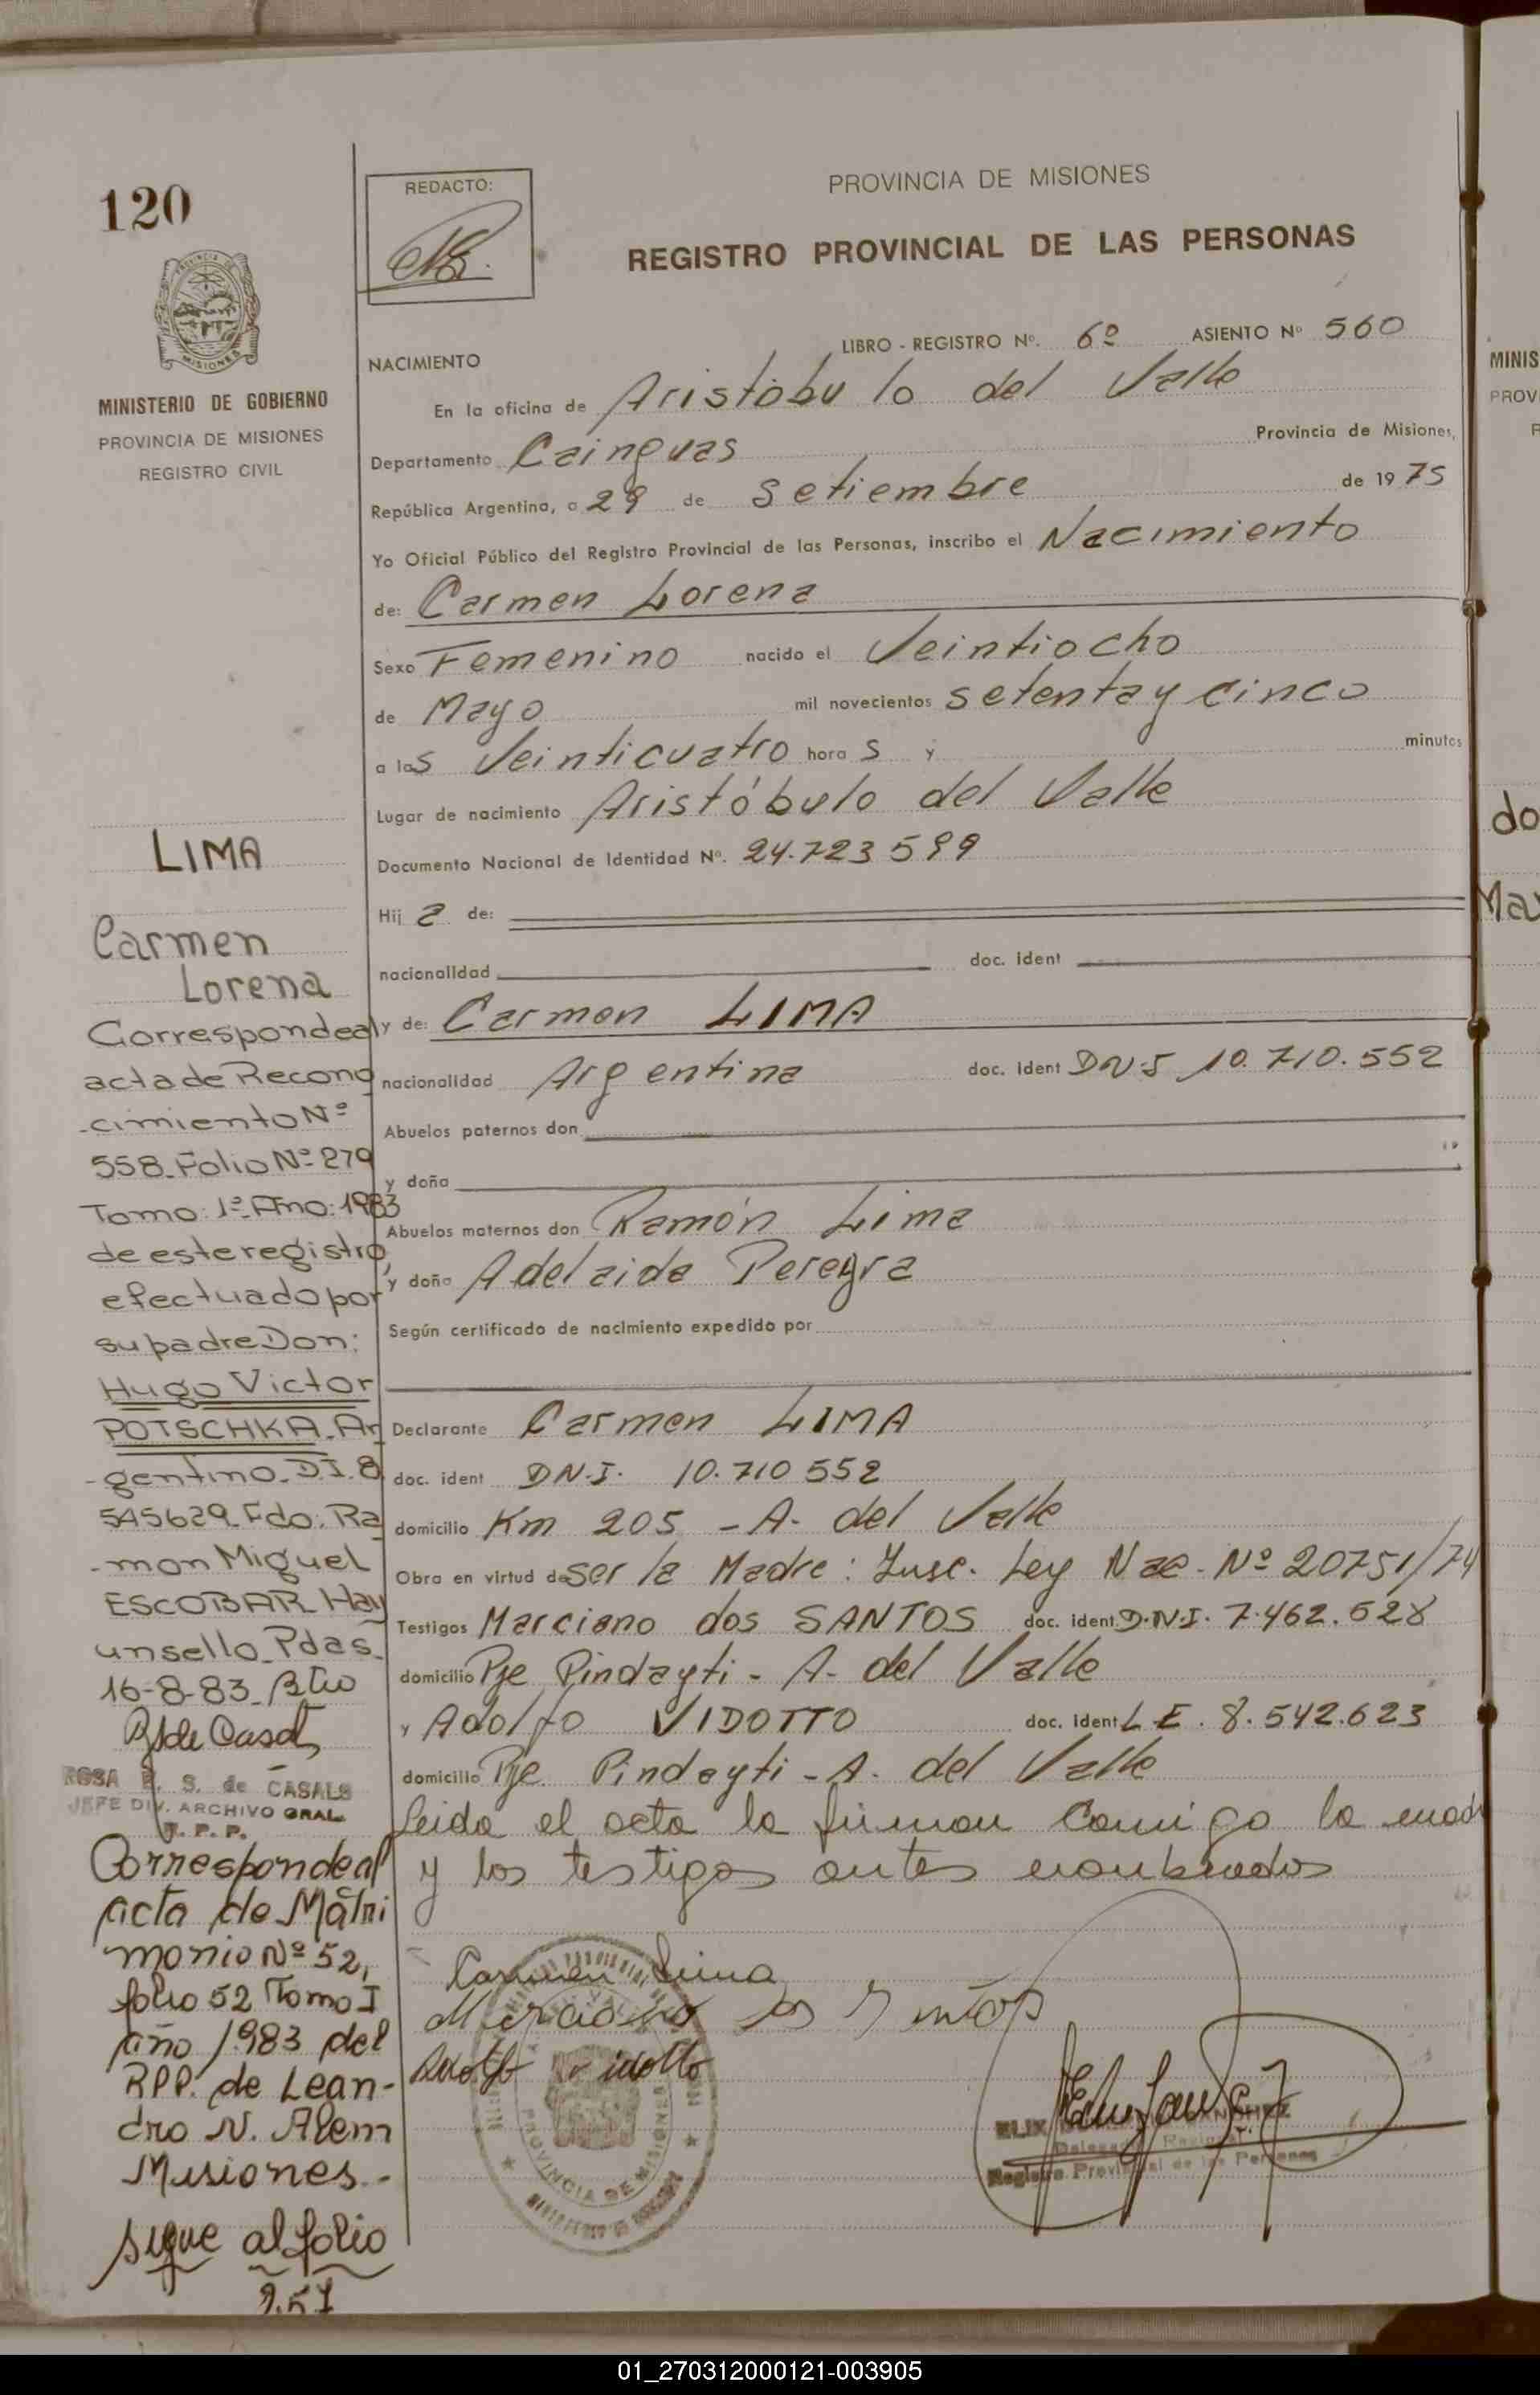 120
MINISTERIO DE GOBIERNO
PROVINCIA DE MISIONES
REGISTRO CIVIL
REDACTO:
PROVINCIA DE MISIONES
REGISTRO PROVINCIAL DE LAS PERSONAS
LIBRO - REGISTRO Nº. 6º ASIENTO Nº 560
NACIMIENTO
En la oficina de Aristóbulo del Valle
Departamento Cainguas Provincia de Misiones,
República Argentina, a 29 de Setiembre de 1975
Yo Oficial Público del Registro Provincial de las Personas, inscribo el Nacimiento
de: Carmen Lorena
Sexo Femenino nacido el Veintiocho
de Mayo mil novecientos setenta y cinco
a las Veinticuatro hora s y minutos
Lugar de nacimiento Aristóbulo del Valle
Documento Nacional de Identidad Nº. 24.723599
Hij a de:
nacionalidad doc. ident
y de: Carmen LIMA
nacionalidad Argentina doc. ident DNI 10.710.552
Abuelos paternos don
y doña
Abuelos maternos don Ramón Lima
y doña Adelaida Pereyra
Según certificado de nacimiento expedido por
Declarante Carmen LIMA
doc. ident D.N.I. 10.710552
domicilio Km 205 - A. del Valle
Obra en virtud de ser la Madre: Insc. Ley Nac. Nº 20751/74
Testigos Marciano dos SANTOS doc. ident D.N.I. 7.462.628
domicilio Pje Pindayti - A. del Valle
y Adolfo VIDOTTO doc. ident L.E. 8.542.623
domicilio Pje. Pindayti - A. del Valle
leida el acta la firman Comigo la mad
y los testigos antes nombrados
Carmen Lima
LIMA
Carmen
Lorena
Corresponde al
acta de Recono
-cimiento Nº
558_Folio Nº 279
Tomo: 1º Año: 1983
de este registro,
efectuado por
su padre Don:
Hugo Victor
POTSCHKA_Ar
-gentino_D.I. 8
545629_Fdo: Ra
-mon Miguel
ESCOBAR Hay
un sello_Pdas_
16-8-83_
ROSA S. de CASALS
JEFE DIV. ARCHIVO GRAL.
R. P. P.
Corresponde al
acta de Matri
monio Nº 52,
folio 52 Tomo I
año 1.983 del
RPP. de Lean-
dro N. Alem
Misiones.-
sigue al folio
PROVINCIA DE MISIONES
Delegado Regional
Registro Provincial de las Personas
MINIS
PROV
do
Ma
01_270312000121-003905